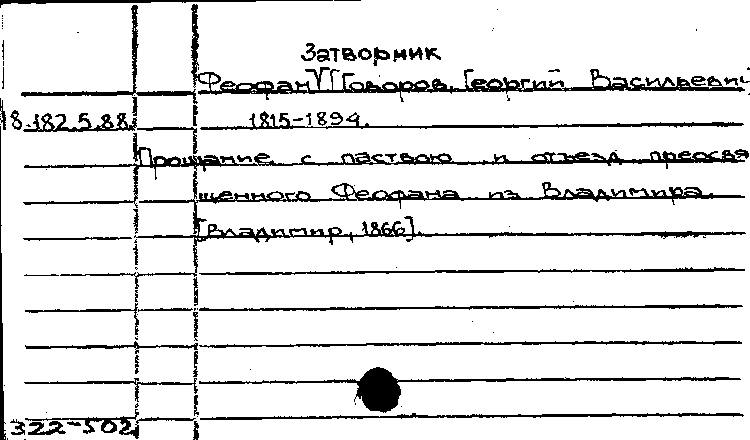 Затворник
Феофан [Говоров, Георгий Васильевич
18.182.5.88. 1815-1894.
Прощание с паствою и отъезд преосвя
щенного Феофана из Владимира.
[Владимир, 1866].
322-502